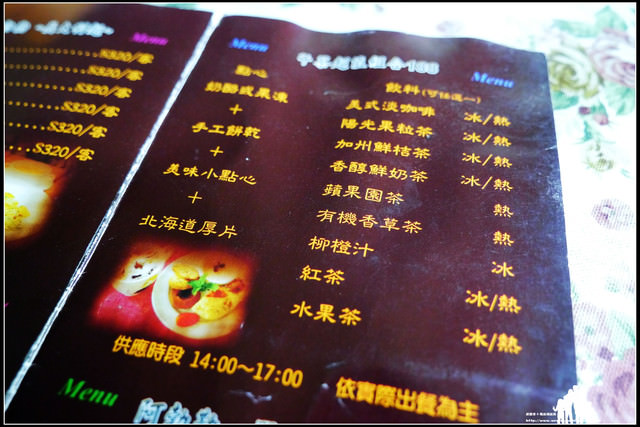 Menu
S320/客
S320/客
S320/客
S320/客
S320/客
Menu
Menu
點心
奶酪或果凍
+
手工餅乾
+
美味小點心
+
北海道厚片
飲料(可任選一)
美式淡咖啡 冰/熱
陽光果粒茶 冰/熱
加州鮮桔茶 冰/熱
香醇鮮奶茶 冰/熱
蘋果園茶 熱
有機香草茶 熱
柳橙汁 冰
紅茶 冰/熱
水果茶 冰/熱
供應時段 14:00~17:00
依實際出餐為主
Menu